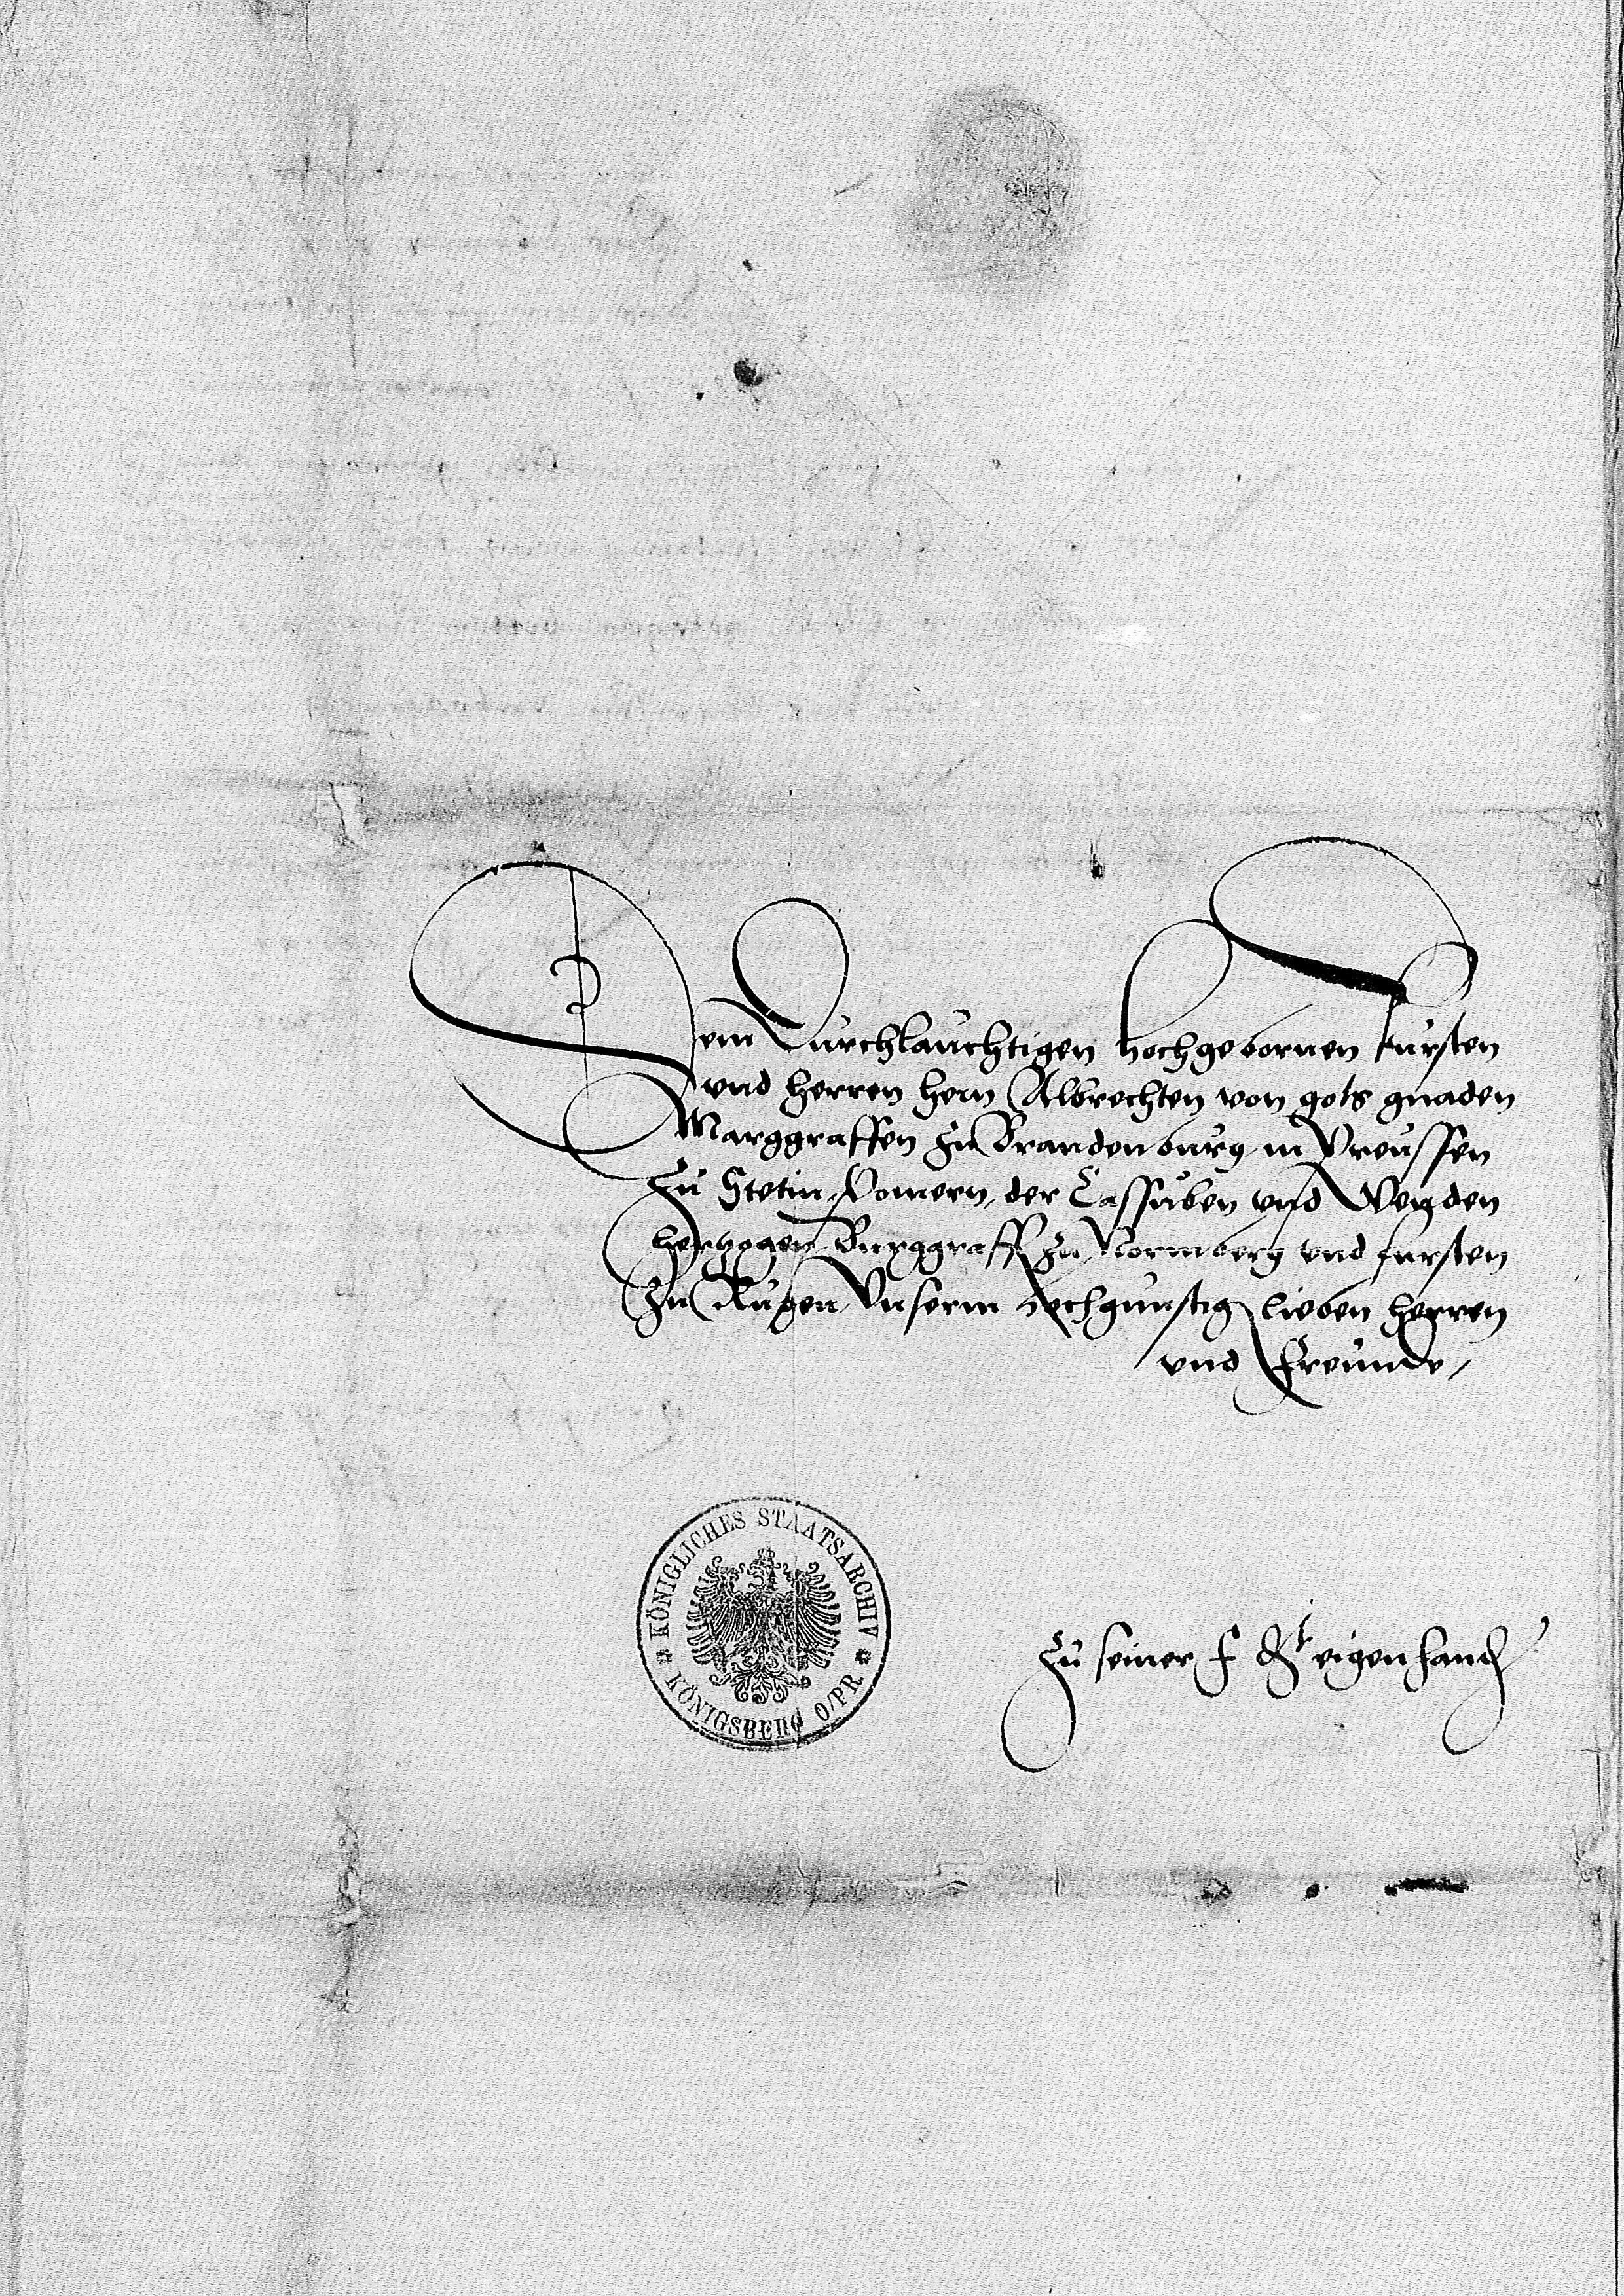 Dem Durchlauchtigen hochgebornen fursten
vnd herren hern Albrechten von gots gnaden
Marggraffen zu Brandenburg in Preussen
zu Stetin, Pomern, der Cassuben vnd Wenden
hertzogen, Burggraff zu Nornberg vnd fursten
zu Rugen, Vnserm hochgunstig lieben herren
vnd Freunde,
KÖNIGLICHES STAATSARCHIV
KÖNIGSBERG O/PR.
zu seiner f Gt eigen handt